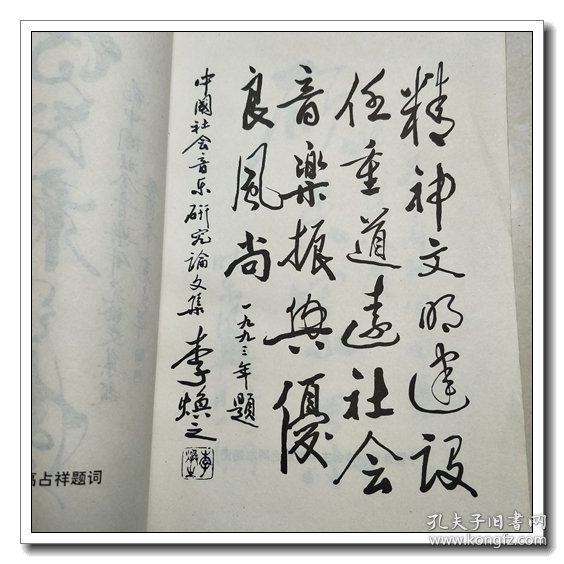 精神文明建设
任重道远社会
音樂振興優
良風尚
一九九三年題
中國社会音乐研究論文集
李焕之
高占祥题词
孔夫子旧书网
www.kongfz.com